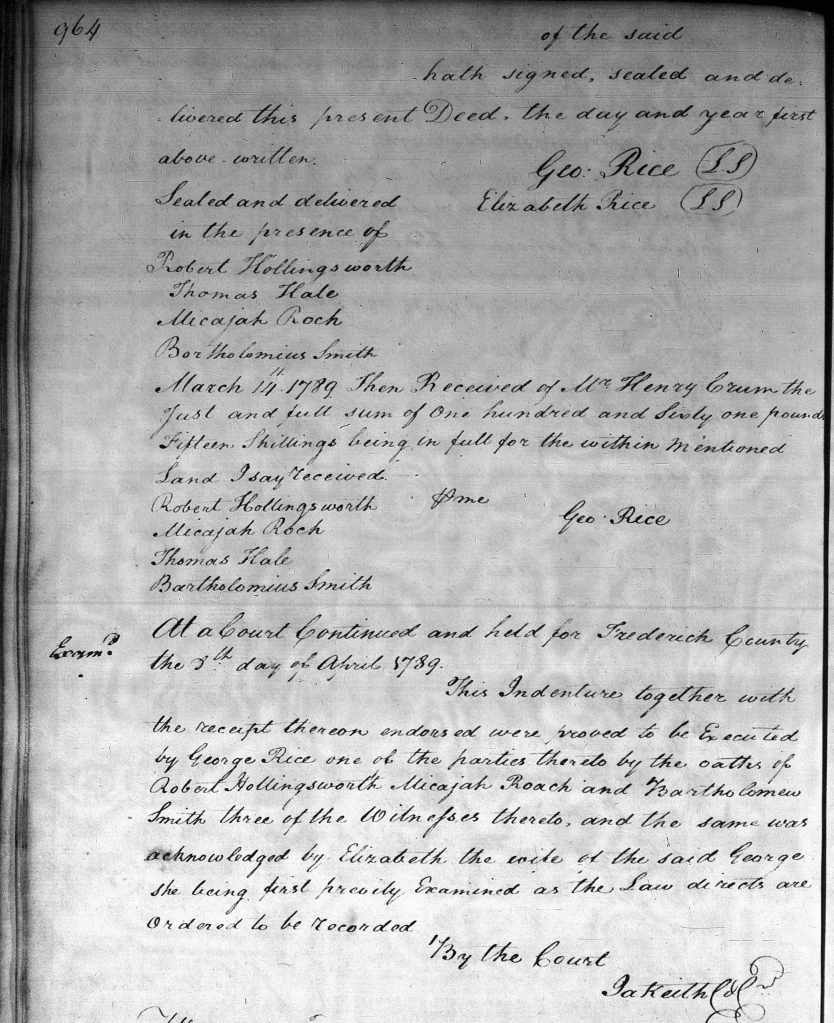 964
of the said
hath signed, sealed and de-
livered this present Deed. the day and year first
above written.
Geo: Rice (LS)
Sealed and delivered
Elizabeth Rice (LS)
in the presence of
Robert Hollingsworth
Thomas Hale
Micajah Roch
Bartholomius Smith
March 14. 1789 Then Received of Mr. Henry Crum the
Just and full sum of One hundred and Sixty one pounds
Fifteen Shillings being in full for the within mentioned
Land I say received.
Robert Hollingsworth
me
Geo. Rice
Micajah Roch
Thomas Hale
Bartholomius Smith
At a Court Continued and held for Frederick County
Exam.d
the 3th day of April 1789.
This Indenture together with
the receipt thereon endorsed were proved to be Executed
by George Rice one of the parties thereto by the oaths of
Robert Hollingsworth Micajah Roach and Bartholomew
Smith three of the Witnesses thereto, and the same was
acknowledged by Elizabeth the wife of the said George
she being first previly Examined as the Law directs are
Ordered to be recorded
By the Court
Ja Keith